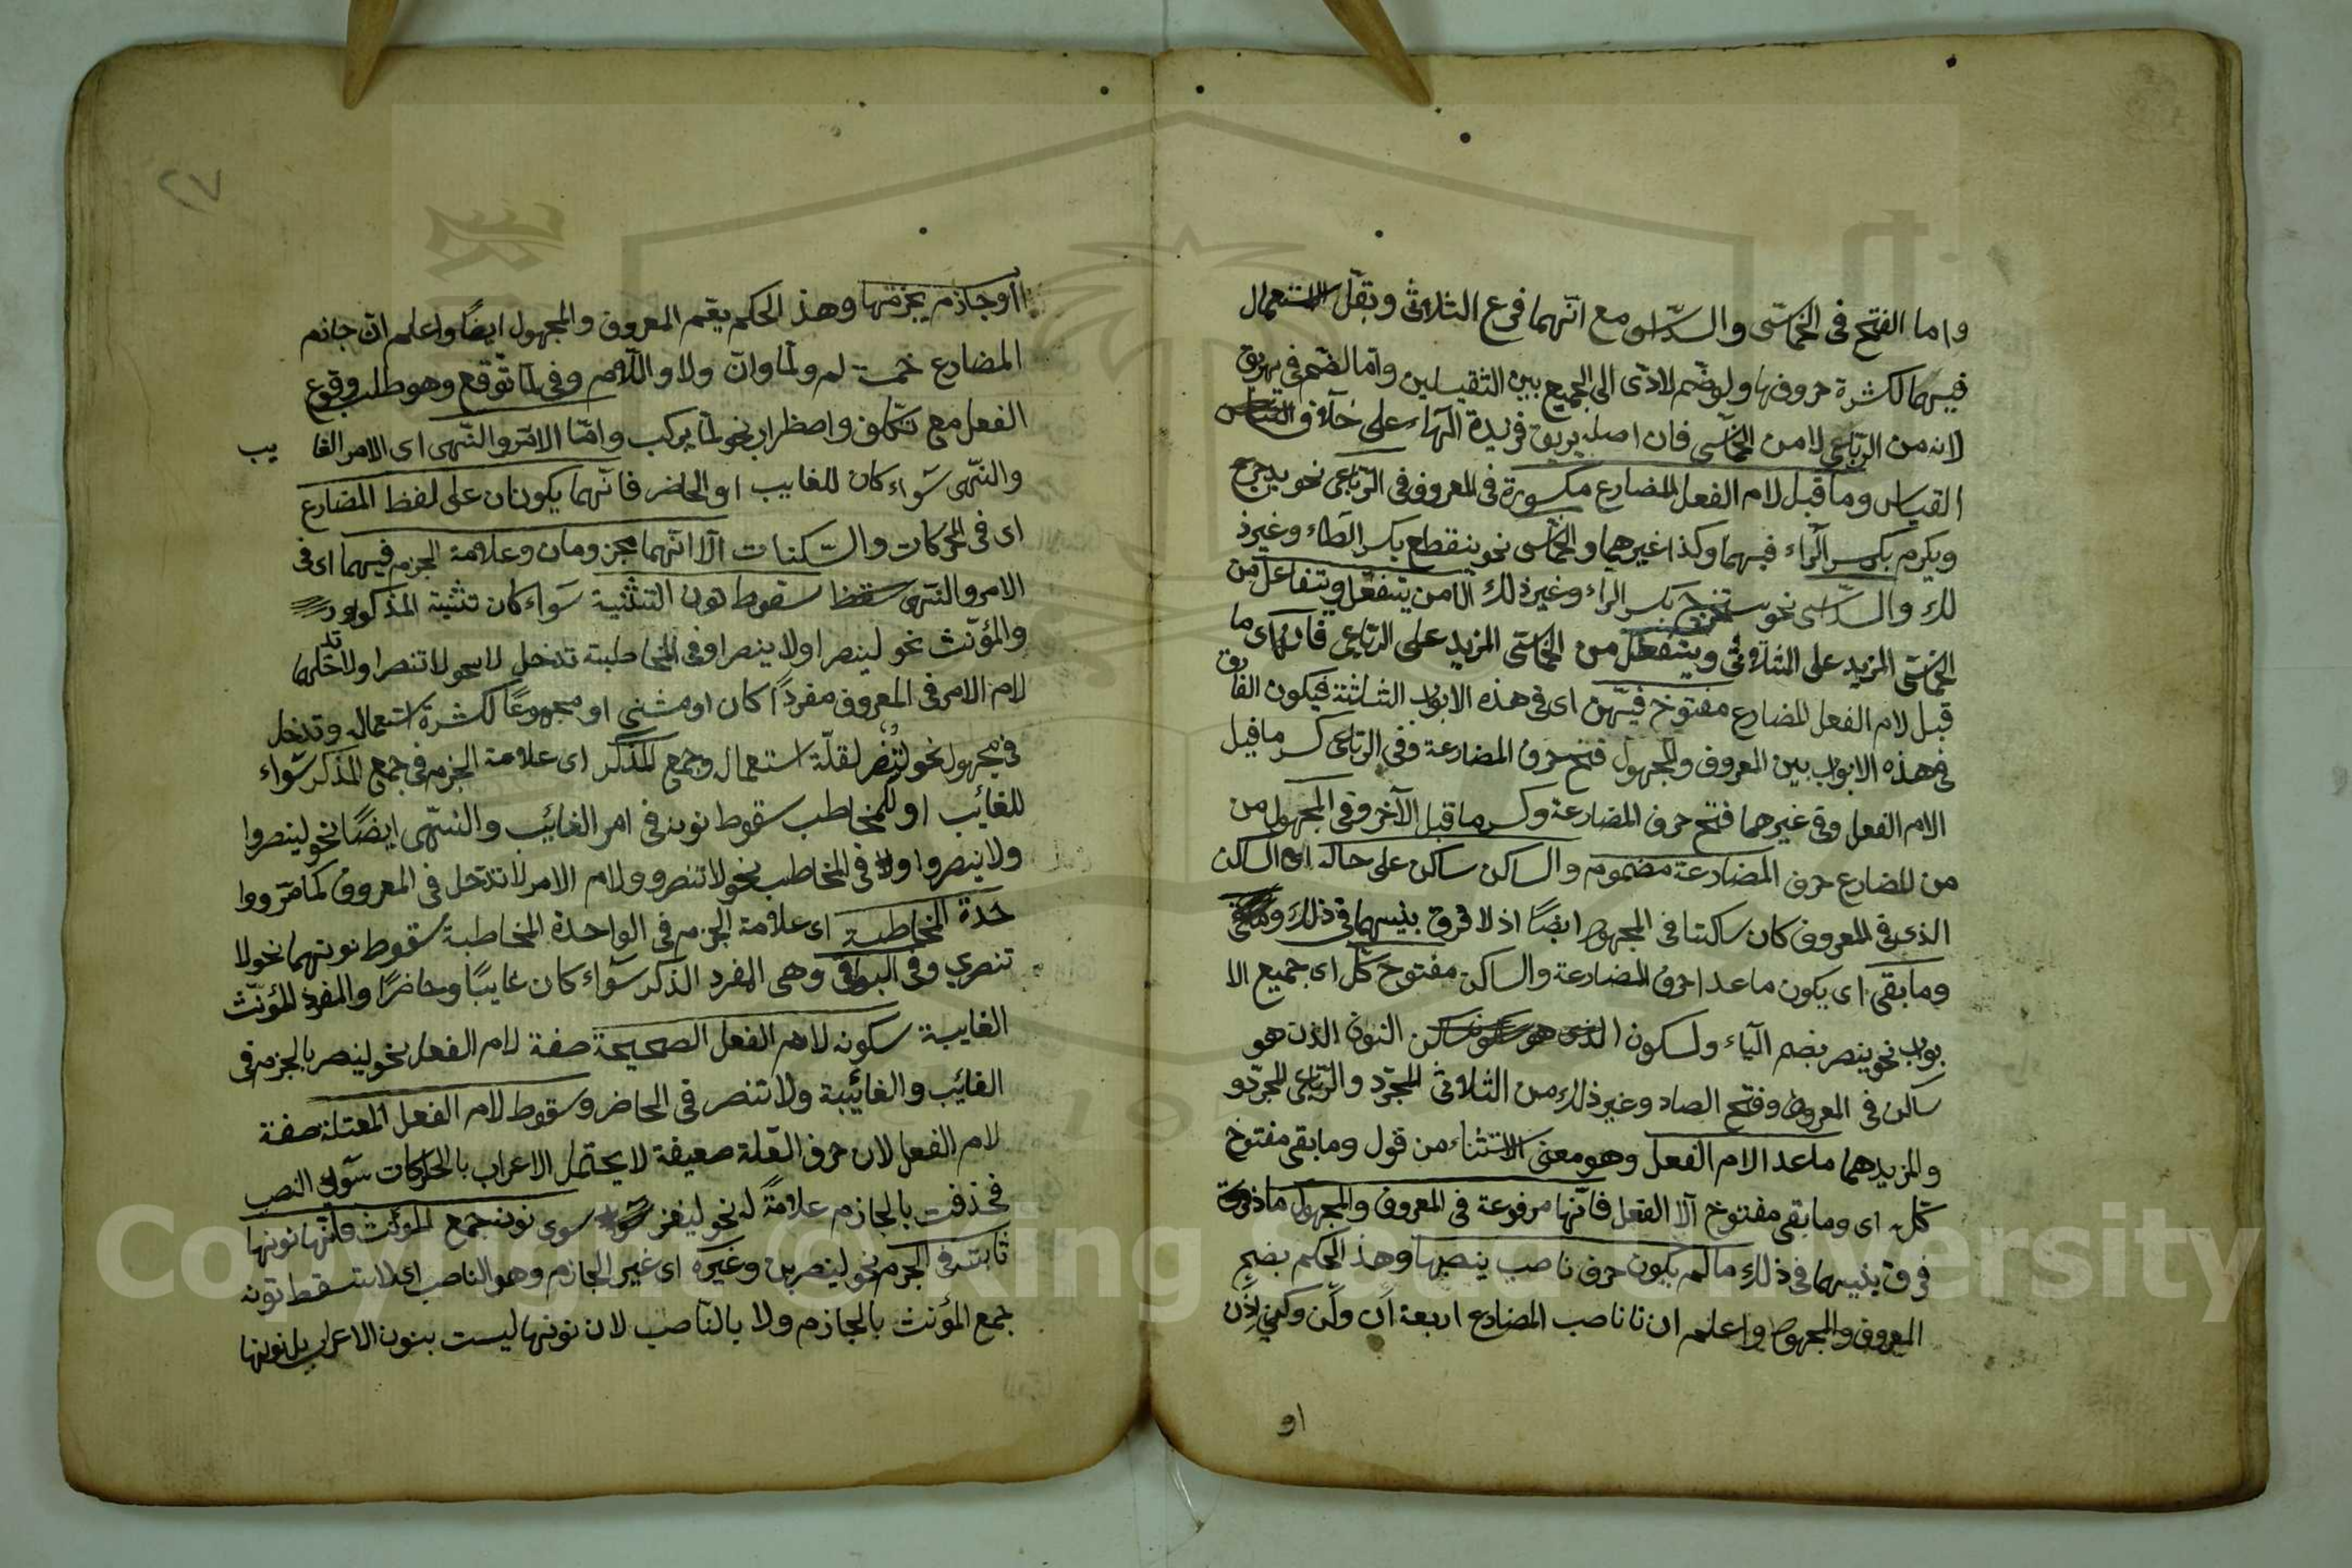 واما الفتح فى الخماسّى والسّداسى مع انّهما فرع الثلاثى وبقلّ الاستعمال
فيهما لكثرة حروفهما ولو ضّم لادّى الى الجميع بين الثقيلين وامّا لضّم فى يهريق
لانه من الرباعى لا من الخماسّى فان اصله يريق فزيدة الهاء على خلاف القياس
القياس وما قبل لام الفعل المضارع مكسورة فى المعروف فى الرباعى نحو يدحرج
ويكرم بكسر الرّاء فيهما وكذا غيرهما والخماسّى نحو ينقطع بكسر الطاء وغير ذ
لك والسّداسى نحو يستخرج بكسر الراء وغير ذلك الّا من يتفعّل ويتفاعل من
الخماسّى المزيد على الثلاثى ويتفعلل من الخماسّى المزيد على الرباعى فان ما
قبل لام الفعل المضارع مفتوح فيهّن اى فى هذه الابواب الثلثة فيكون الفارق
فى هذه الابواب بين المعروف والمجهول فتح حرف المضارعة وفى الرباعى كسر ما قبل
الام الفعل وفى غيرهما فتح حرف المضارعة وكسر ما قبل الآخر وفى المجهول من
من المضارع حرف المضارعة مضموم والساكن ساكن على حاله اى الساكن
الذى فى المعروف كان ساكنا فى المجهول ايضًا اذ لا فرق بينهما فى ذلك
وما بقى اى يكون ما عدا حرف المضارعة والساكن مفتوح كلّ اى جميع الا
بواب نحو ينصر بضم الياء ولسكون النون الذى هو
ساكن فى المعروف وفتح الصاد وغير ذلك من الثلاثى المجرّد والرّباعى المجرّد و
والمزيد هما ما عدا لام الفعل وهو معنى الاستثناء من قول وما بقى مفتوح
كلّه اى وما بقى مفتوح الّا الفعل فانّها مرفوعة فى المعروف والمجهول ما ذ
فرق بينهما فى ذلك ما لم يكون حرف ناصب ينصبها وهذا الحكم بضم
المعروف والمجهول واعلم ان نا ناصب المضارع اربعة ان ولن وكى اذن
او
٢٧
او جازم يجزمها وهذ الحكم يعّم المعروف والمجهول ايضًا واعلم انّ جازم
المضارع خمسة لم ولمّا وانّ ولا واللام وفى لمّا توقع وهو طلب وقوع
الفعل مع تكّلف واضظراب نحو لمّا يركب وامّا الامر والنّهى اى الامر الغا يب
والنّهى سواء كان للغايب او الحاضر فانّهما يكونان على لفظ المضارع
اى فى الحركات والسّكنات الّا انّهما مجزومان وعلامة الجزم فيهما اى فى
الامر والنهى سقوط نون التثنية سواء كان تثنية المذكر او
والمؤنّث نحو لينصرا ولا ينصرا وفى المخاطبة تدخل لا نحو لا تنصرا ولا
لام الامر فى المعروف مفردًا كان او مثنى او مجموعًا لكثرة استعماله وتدخل
فى مجهول نحو لتُنصر لقلّة استعماله وجمع المذكر اى علامة الجزم فى جمع المذكر سّواء
للغائب او للمخاطب سقوط نونه فى امر الغائب والنهى ايضًا نحو لينصروا
ولا ينصروا ولا فى المخاطب نحو لا تنصروا ولام الامر لا تدخل فى المعروف كما مّر ووا
حدة المخاطبة اى علامة الجزم فى الواحدة المخاطبة سقوط نونهما نحو لا
تنصري وفى البواقى وهى المفرد الذكر سواء كان غايبًا وحاضرًا والمفرد المؤنّث
الغايبة سكونه لام الفعل الصحيحة صفة لام الفعل نحو لينصر بالجزم فى
الغايب والغائبة ولا تنصر فى الحاضر وسقوط لام الفعل المعتلة صفة
لام الفعل لان حرف العلة ضعيفة لا يحتمل الاعراب بالحركات سوى النصب
فحذفت بالجازم علامةً له نحو ليغز سوى نون جمع المؤنث فانّها نونها
ثابتة فى الجزم نحو لينصربن وغيره اى غير الجازم وهو الناصب اى لا تسقط نونه
جمع المؤنث بالجازم ولا بالناصب لان نونها ليست بنون الاعراب بل نونها
Copyright © King Saud University